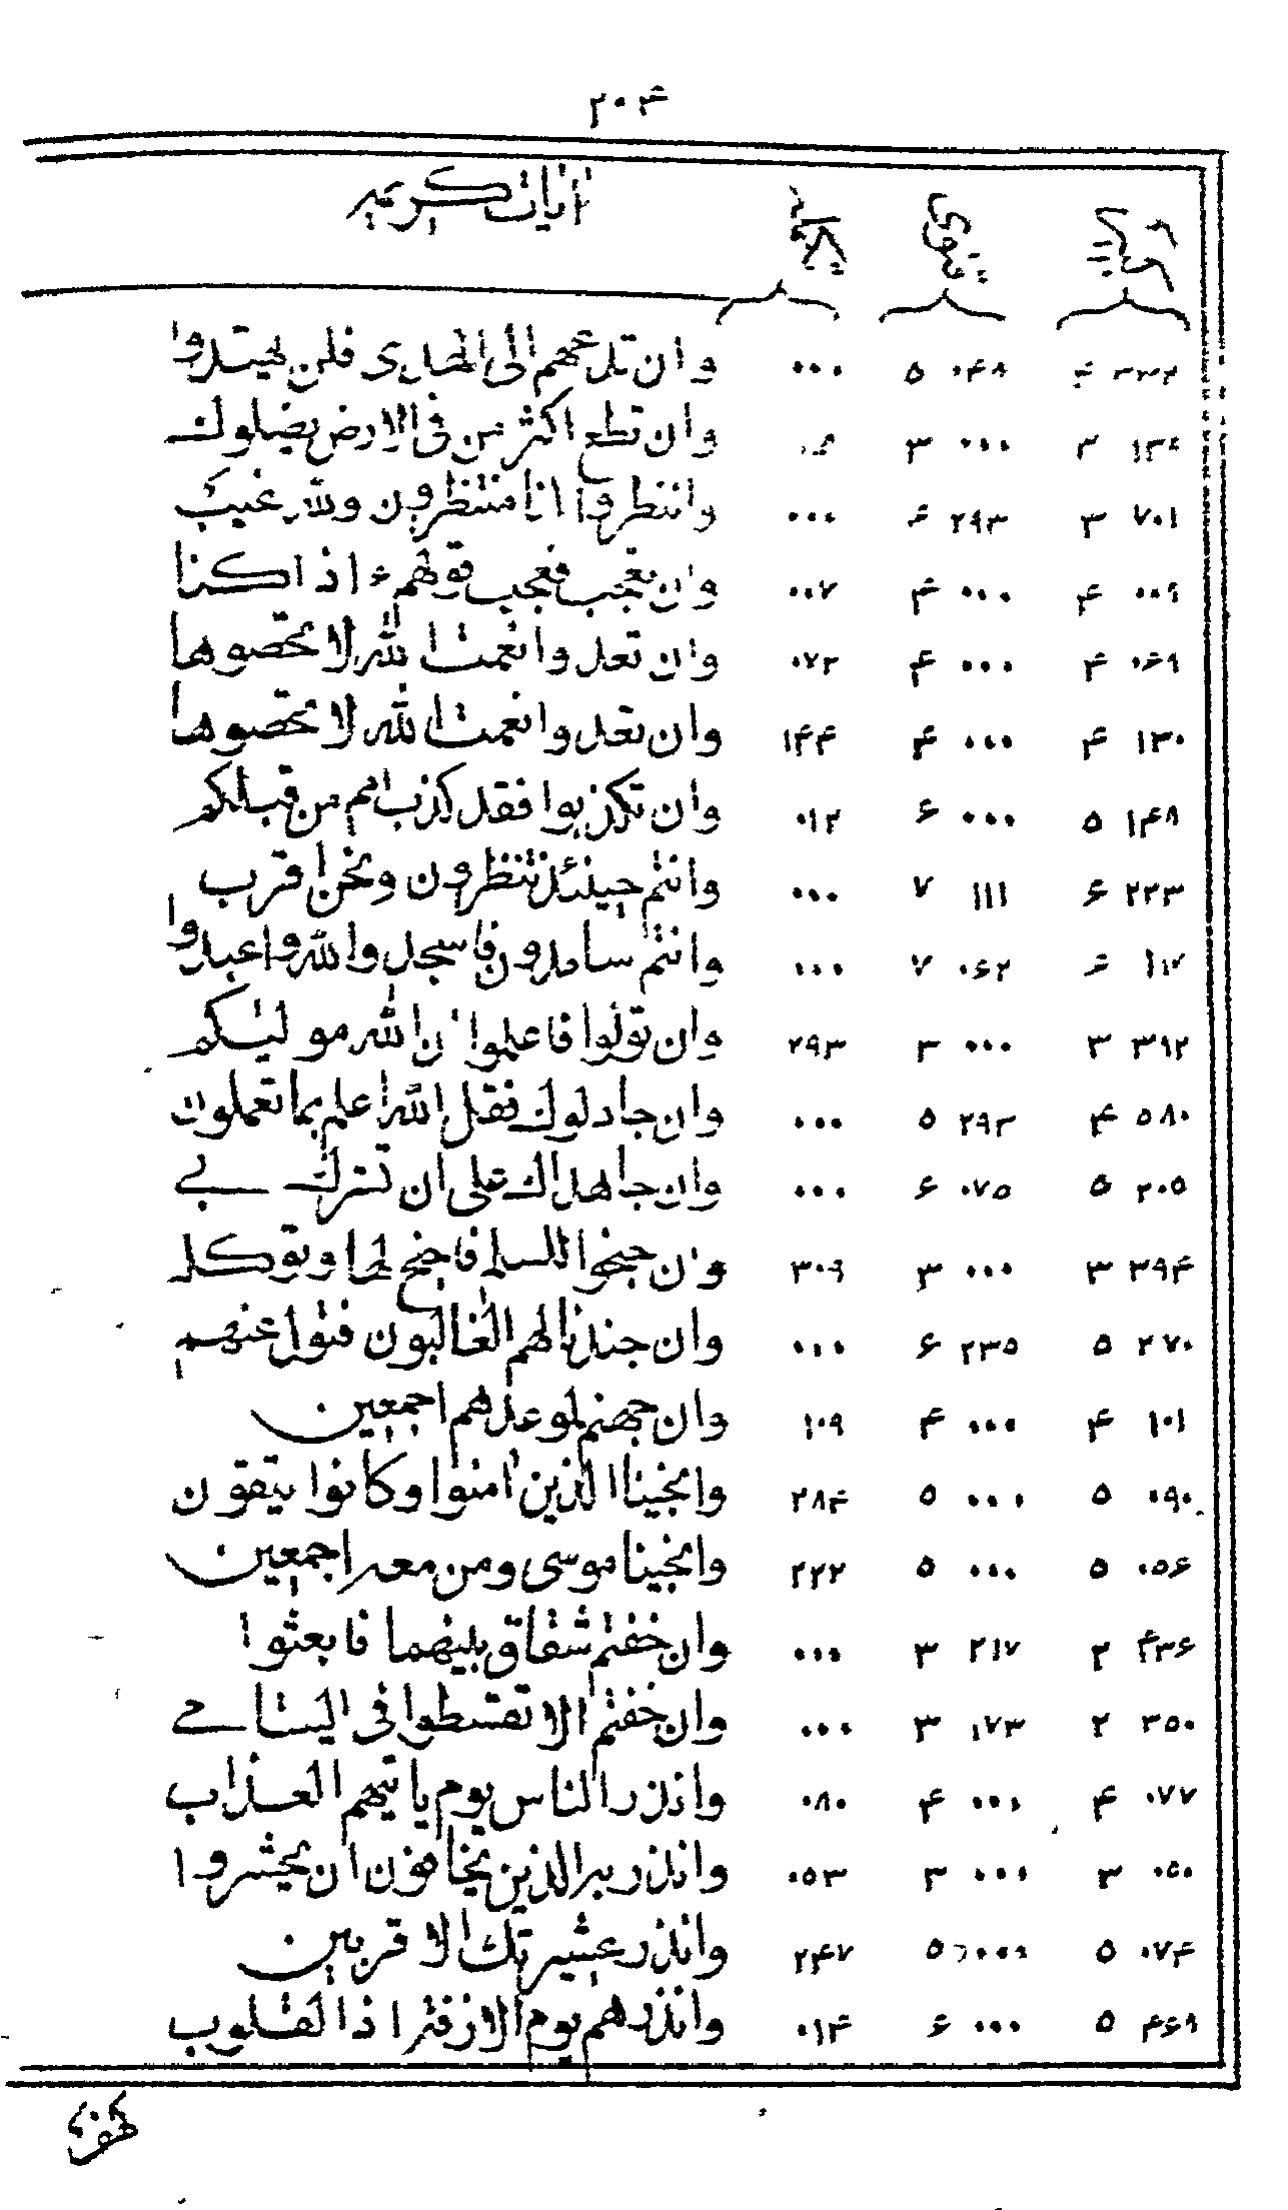 ۲۰۴
آیات کریمه
۳۳۲ ۴ ۰۴۸ ۵ ۰۰۰ وان تدعهم الی الهدی فلن یهتدوا
۳ ۰۰۰ ۳ وان تطع اکثر من فی الارض یضلوك
۷۰۱ ۳ ۲۹۳ ۴ ۰۰۰ وانتظروا انا منتظرون ولله غیب
۰۰۹ ۴ ۰۰۰ ۴ ۰۰۷ وان تعجب فعجب قولهم ء اذا کنا
۰۶۹ ۴ ۰۰۰ ۴ ۰۷۳ وان تعدوا نعمت الله لا تحصوها
۱۳۰ ۴ ۰۰۰ ۴ ۱۴۴ وان تعدوا نعمت الله لا تحصوها
۱۴۸ ۵ ۰۰۰ ۶ ۰۱۲ وان تکذبوا فقد کذب امم من قبلکم
۲۳۳ ۶ ۱۱۱ ۷ ۰۰۰ وانتم حینئذ تنظرون ونحن اقرب
۱۱۷ ۶ ۰۶۲ ۷ ۰۰۰ وانتم سامدون فاسجدوا لله واعبدوا
۳۱۲ ۳ ۰۰۰ ۳ ۲۹۳ وان تولوا فاعلموا ان الله مولیٰکم
۵۸۰ ۴ ۲۹۳ ۵ ۰۰۰ وان جادلوك فقل الله اعلم بما تعملون
۲۰۵ ۵ ۰۷۵ ۶ ۰۰۰ وان جاهداك علی ان تشرك بی
۳۹۴ ۳ ۰۰۰ ۳ ۳۰۹ وان جنحوا للسلم فاجنح لها وتوکل
۲۷۰ ۵ ۲۳۵ ۶ ۰۰۰ وان جندنا لهم الغالبون فتول عنهم
۱۰۱ ۴ ۰۰۰ ۴ ۱۰۹ وان جهنم لموعدهم اجمعین
۰۹۰ ۵ ۰۰۰ ۵ ۲۸۴ وانجینا الذین اٰمنوا وکانوا یتقون
۰۵۶ ۵ ۰۰۰ ۵ ۲۲۲ وانجینا موسی ومن معه اجمعین
۴۳۶ ۲ ۲۱۷ ۳ ۰۰۰ وان خفتم شقاق بینهما فابعثوا
۳۵۰ ۲ ۱۷۳ ۳ ۰۰۰ وان خفتم الا تقسطوا فی الیتامی
۰۷۷ ۴ ۰۰۰ ۴ ۰۸۰ وانذر الناس یوم یاتیهم العذاب
۰۵۰ ۳ ۰۰۰ ۳ ۰۵۳ وانذر به الذین یخافون ان یحشروا
۰۷۴ ۵ ۰۰۰ ۵ ۲۴۷ وانذر عشیرتك الاقربین
۴۶۹ ۵ ۰۰۰ ۶ ۰۱۴ وانذرهم یوم الازفة اذ القلوب